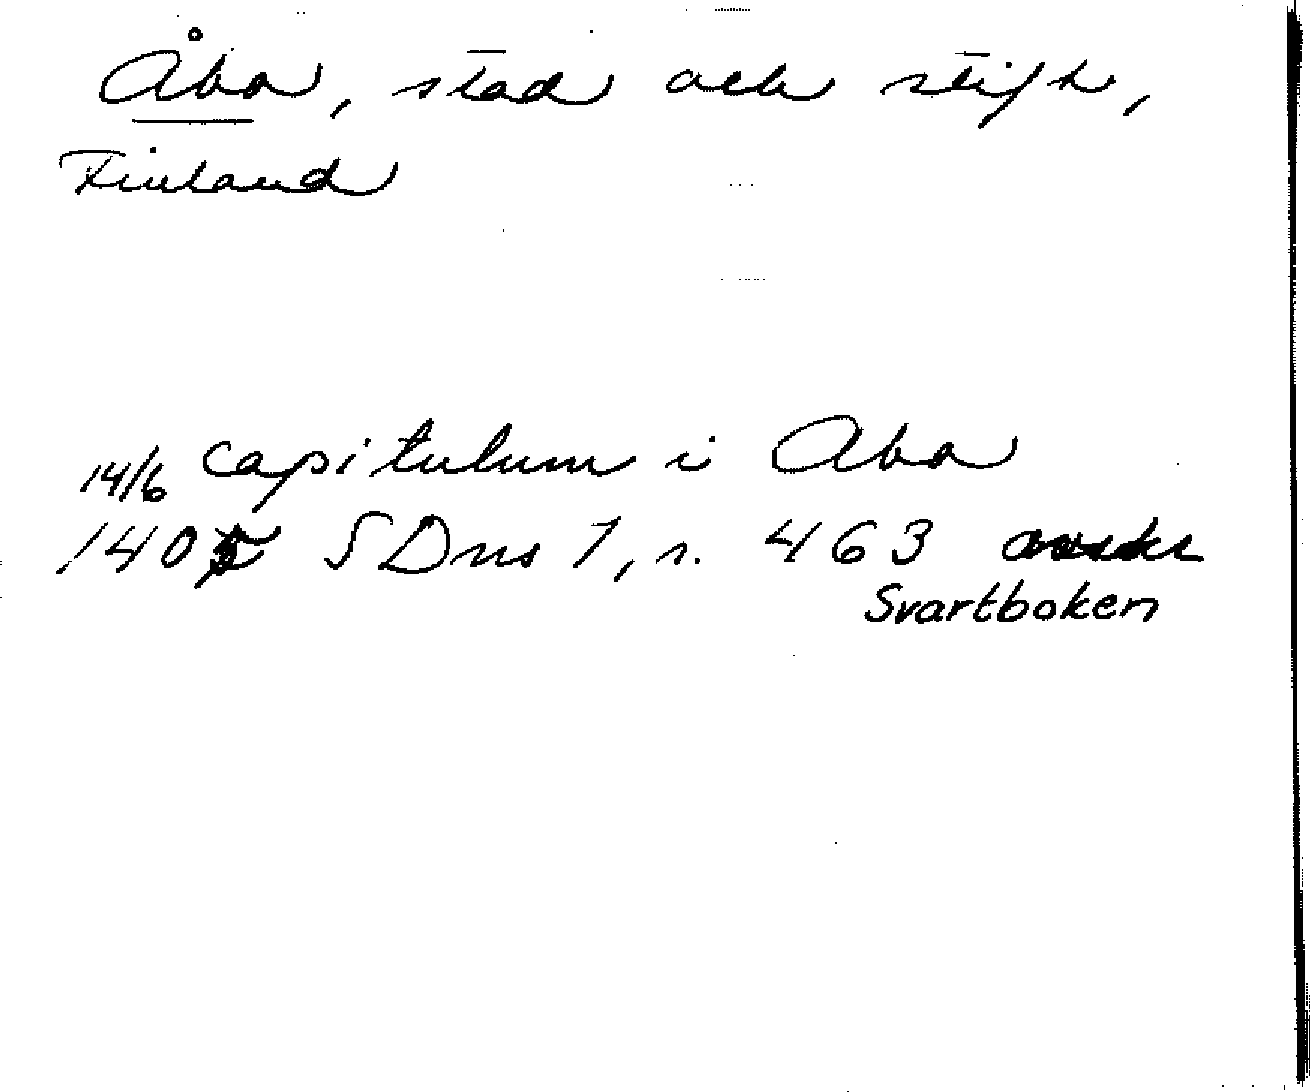 Åbo, stad och stift,
Finland
14/6 capitulum i Abo
1405 SDns 1, s. 463
Svartboken